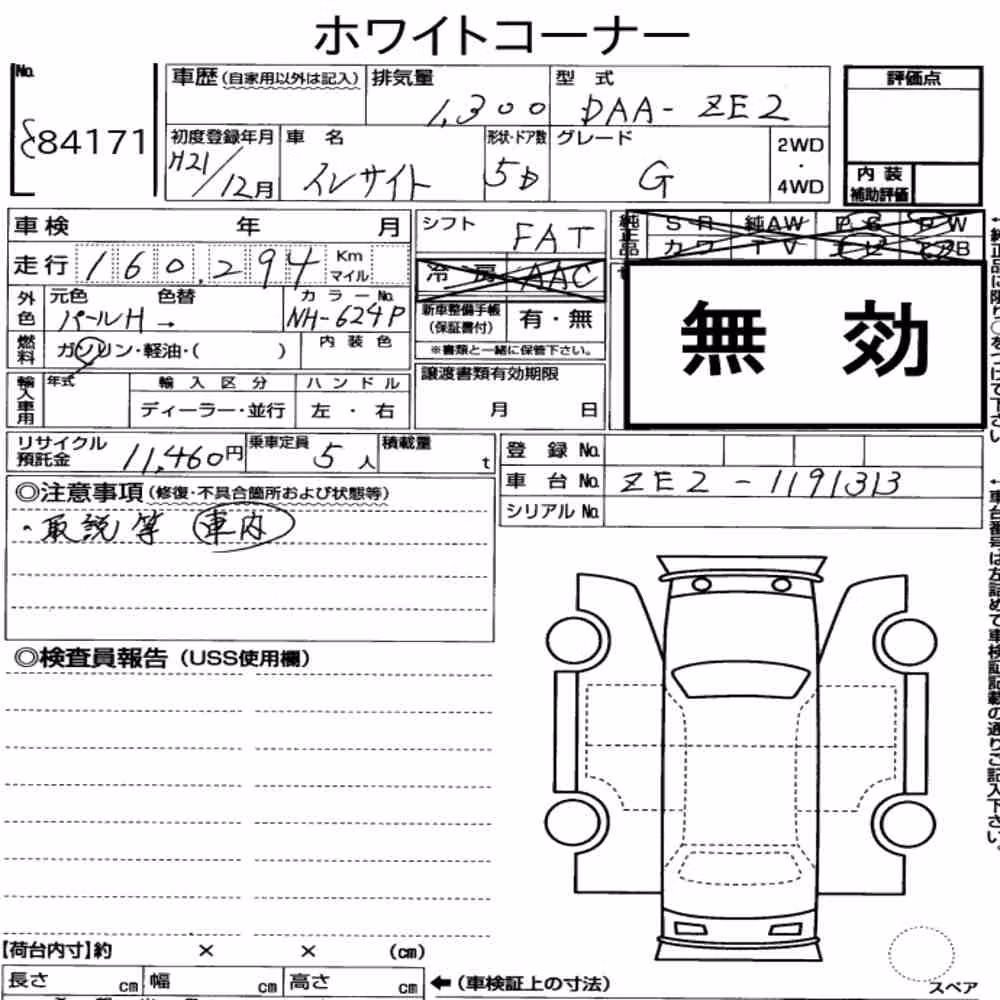 ホワイトコーナー
No. 84171
車歴(自家用以外は記入) 排気量 1,300 型式 DAA-ZE2
初度登録年月 H21/12月 車名 インサイト 形状・ドア数 5D グレード G 2WD・4WD
評価点
内装補助評価
車検 年 月
走行 160,294 Km マイル
外色 元色 パールH → 色替 カラーNo. NH-624P
燃料 ガソリン・軽油・( ) 内装色
輸入車用 年式 輸入区分 ディーラー・並行 ハンドル 左・右
シフト FAT
冷房 AAC
新車整備手帳(保証書付) 有・無
※書類と一緒に保管下さい。
譲渡書類有効期限 月 日
純正品 SR 純AW PS PW
カワ TV
無効
←純正品に限り○をつけて下さい
リサイクル預託金 11,460円 乗車定員 5人 積載量 t
登録No.
車台No. ZE2-1191313
シリアルNo.
←車台番号は左詰めで車検証記載の通りご記入下さい。
◎注意事項(修復・不具合箇所および状態等)
・取説等 車内
◎検査員報告(USS使用欄)
【荷台内寸】約 × × (cm)
長さ cm 幅 cm 高さ cm ←(車検証上の寸法)
スペア